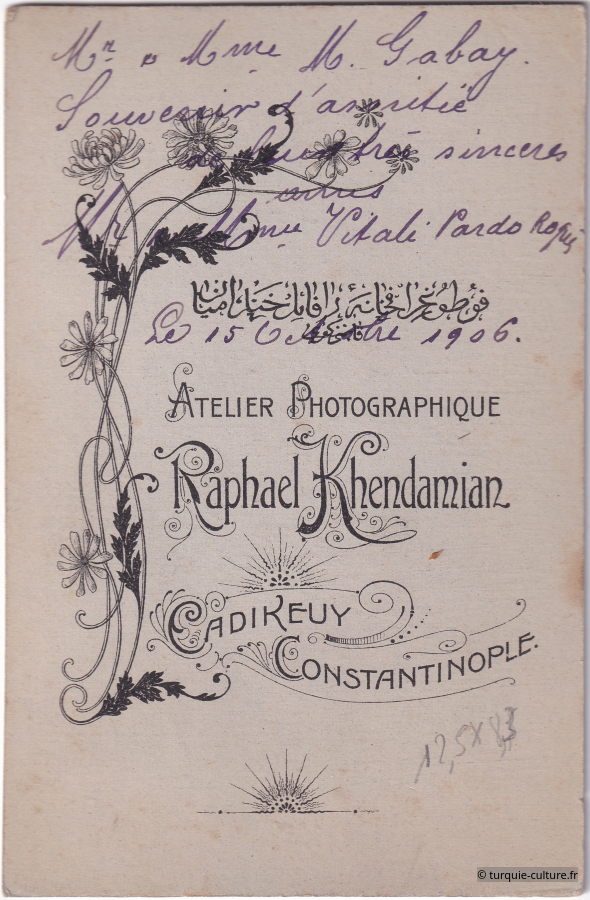 Mr & Mme M. Gabay.
Souvenir d'amitié
de leurs très sincères
amis
Mr & Mme Vitali Pardo
فوطوغرافخانه رافائل خنداميان
قاضيكوى
Le 15 Octobre 1906.
ATELIER PHOTOGRAPHIQUE
Raphael Khendamian
CADIKEUY
CONSTANTINOPLE.
12,5 x 8,3
© turquie-culture.fr